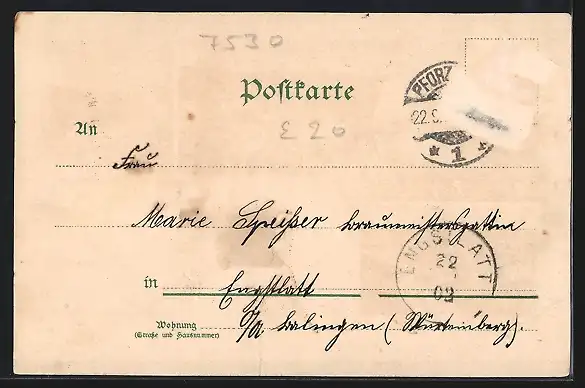 7530
Postkarte
PFORZ
22.
* 1 *
E 20
An
Frau
Marie Speißer Braumeistersgattin
ENGSTLATT
22
02
in Engstlatt
Wohnung
(Straße und Hausnummer)
O/A Balingen (Württemberg).